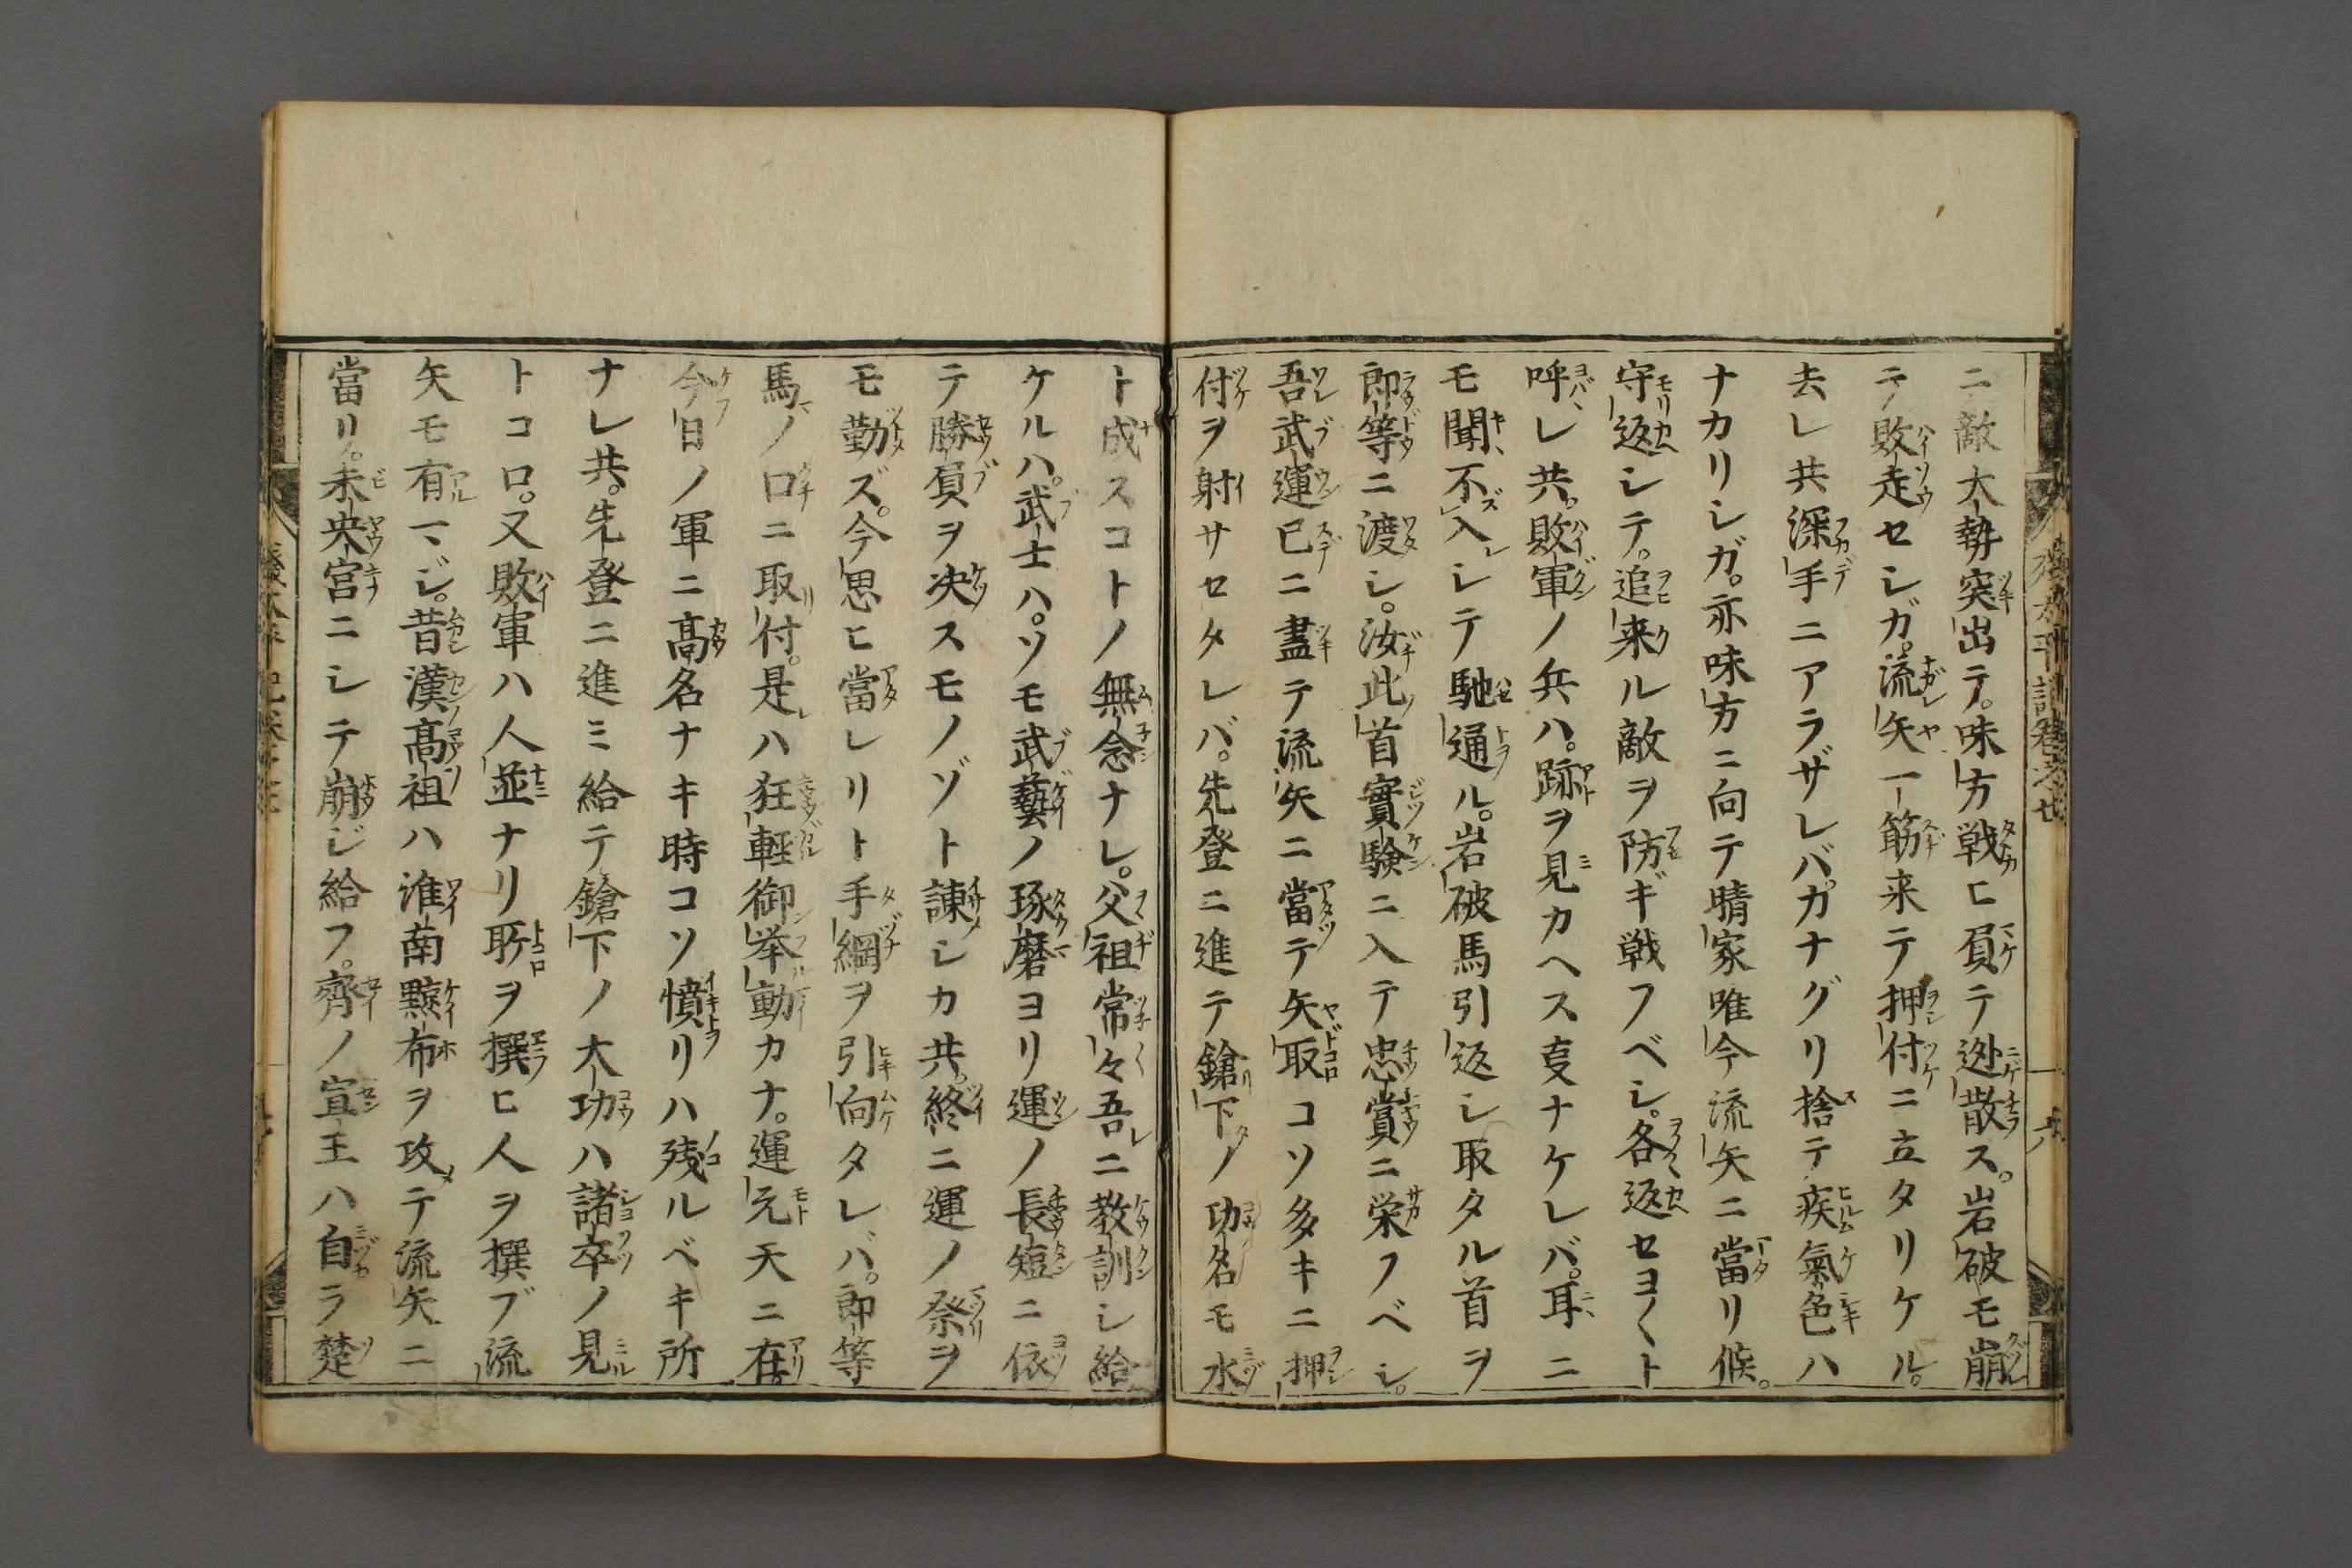 ニ敵大勢突出テ。味方戦ヒ負テ迯散ス。岩破モ崩
テ敗走セシガ。流矢一筋来テ押付ニ立タリケル。
去レ共深手ニアラザレバ。カナグリ捨テ疾氣色ハ
ナカリシガ。亦味方ニ向テ晴家唯今流矢ニ當リ候。
守返シテ。追来ル敵ヲ防ギ戦フベシ。各返セヨ〱ト
呼レ共。敗軍ノ兵ハ。跡ヲ見カヘス叓ナケレバ。耳ニ
モ聞不入シテ馳通ル。岩破馬引返シ取タル首ヲ
郎等ニ渡シ。汝此首實験ニ入テ忠賞ニ栄フベシ。
吾武運已ニ盡テ流矢ニ當テ矢取コソ多キニ押
付ヲ射サセタレバ。先登ニ進テ鎗下ノ功名モ水
ト成スコトノ無念ナレ。父祖常々吾ニ教訓シ給
ケルハ。武士ハ。ソモ武藝ノ琢磨ヨリ運ノ長短ニ依
テ勝負ヲ决スモノゾト諌シカ共。終ニ運ノ祭ヲ
モ勤ズ。今思ヒ當レリト手綱ヲ引向タレバ。郎等
馬ノ口ニ取付。是ハ狂輕御挙動カナ。運元天ニ在。
今日ノ軍ニ髙名ナキ時コソ憤リハ残ルベキ所
ナレ共。先登ニ進ミ給テ鎗下ノ大功ハ諸卒ノ見
トコロ。又敗軍ハ人並ナリ所ヲ撰ヒ人ヲ撰ブ流
矢モ有マジ。昔漢髙祖ハ淮南黥布ヲ攻テ流矢ニ
當リ。未央宮ニシテ崩ジ給フ。齊ノ宣王ハ自ラ楚